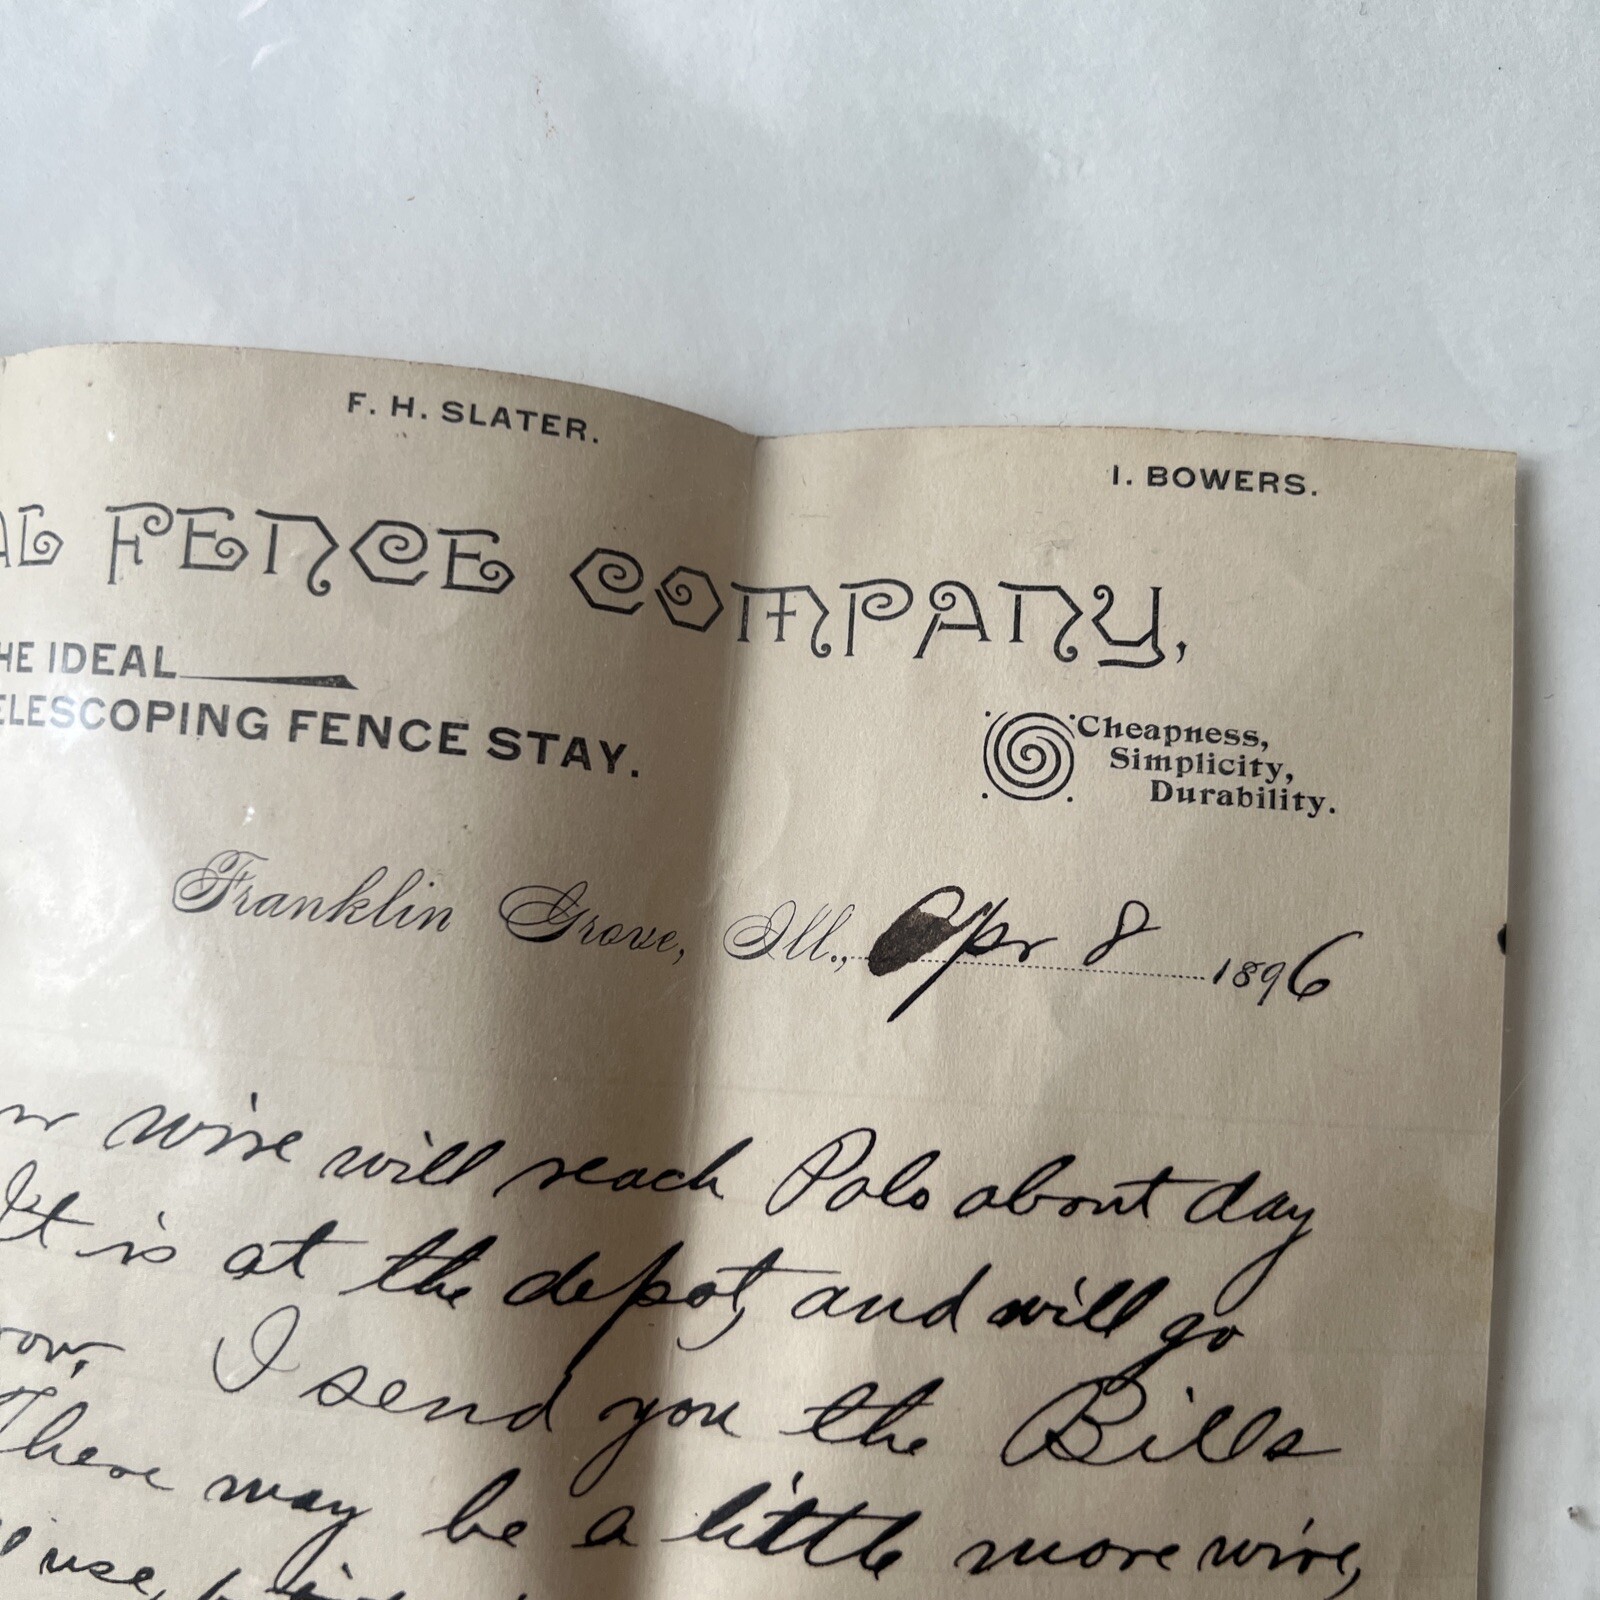 F. H. SLATER.
I. BOWERS.
AL FENCE COMPANY,
HE IDEAL
ELESCOPING FENCE STAY.
Cheapness,
Simplicity,
Durability.
Franklin Grove, Ill., Apr 8 1896
wire will reach Polo about day
It is at the depot, and will go
row. I send you the Bills
There may be a little more wire,
use,